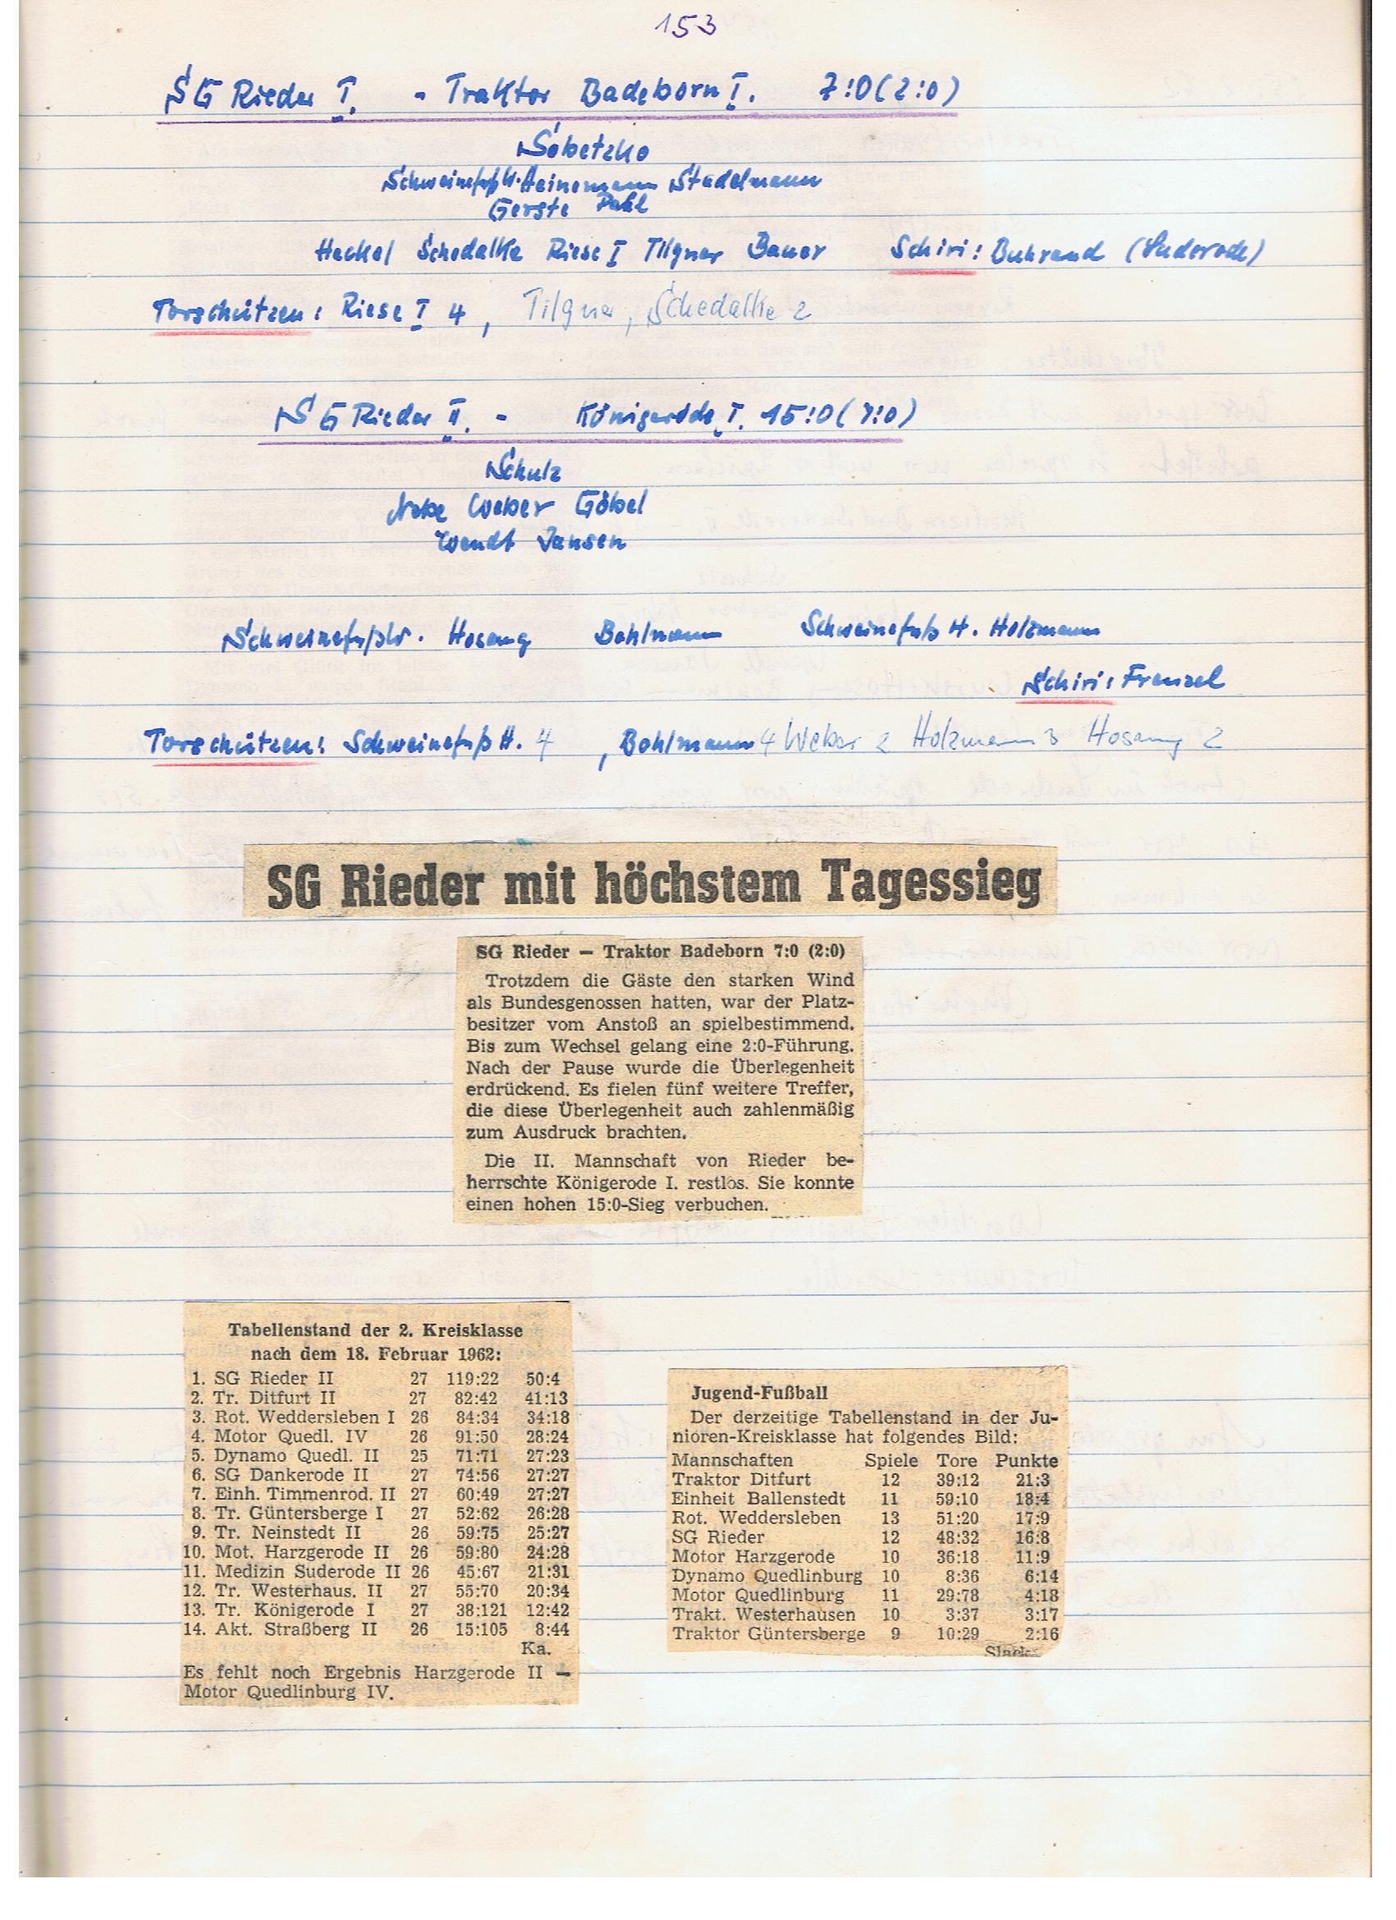 153
SG Rieder I. - Traktor Badeborn I. 7:0 (2:0)
Sobetzko
Schweinefuß W. Heinemann Stadelmann
Gerste Pahl
Heckel Schedalke Riese I Tilgner Bauer Schiri: Buhrend (Suderode)
Torschützen: Riese I 4, Tilgner, Schedalke 2
SG Rieder II. - Königerode I. 15:0 (7:0)
Schulz
Nebe Weber Göbel
Wendt Jansen
Schweinefuß W. Hosang Bohlmann Schweinefuß H. Holzmann
Schiri: Frenzel
Torschützen: Schweinefuß H. 4, Bohlmann 4 Weber 2 Holzmann 3 Hosang 2
SG Rieder mit höchstem Tagessieg
SG Rieder — Traktor Badeborn 7:0 (2:0)
Trotzdem die Gäste den starken Wind
als Bundesgenossen hatten, war der Platz-
besitzer vom Anstoß an spielbestimmend.
Bis zum Wechsel gelang eine 2:0-Führung.
Nach der Pause wurde die Überlegenheit
erdrückend. Es fielen fünf weitere Treffer,
die diese Überlegenheit auch zahlenmäßig
zum Ausdruck brachten.
Die II. Mannschaft von Rieder be-
herrschte Königerode I. restlos. Sie konnte
einen hohen 15:0-Sieg verbuchen.
Tabellenstand der 2. Kreisklasse
nach dem 18. Februar 1962:
1. SG Rieder II 27 119:22 50:4
2. Tr. Ditfurt II 27 82:42 41:13
3. Rot. Weddersleben I 26 84:34 34:18
4. Motor Quedl. IV 26 91:50 28:24
5. Dynamo Quedl. II 25 71:71 27:23
6. SG Dankerode II 27 74:56 27:27
7. Einh. Timmenrod. II 27 60:49 27:27
8. Tr. Güntersberge I 27 52:62 26:28
9. Tr. Neinstedt II 26 59:75 25:27
10. Mot. Harzgerode II 26 59:80 24:28
11. Medizin Suderode II 26 45:67 21:31
12. Tr. Westerhaus. II 27 55:70 20:34
13. Tr. Königerode I 27 38:121 12:42
14. Akt. Straßberg II 26 15:105 8:44
Ka.
Es fehlt noch Ergebnis Harzgerode II —
Motor Quedlinburg IV.
Jugend-Fußball
Der derzeitige Tabellenstand in der Ju-
nioren-Kreisklasse hat folgendes Bild:
Mannschaften Spiele Tore Punkte
Traktor Ditfurt 12 39:12 21:3
Einheit Ballenstedt 11 59:10 18:4
Rot. Weddersleben 13 51:20 17:9
SG Rieder 12 48:32 16:8
Motor Harzgerode 10 36:18 11:9
Dynamo Quedlinburg 10 8:36 6:14
Motor Quedlinburg 11 29:78 4:18
Trakt. Westerhausen 10 3:37 3:17
Traktor Güntersberge 9 10:29 2:16